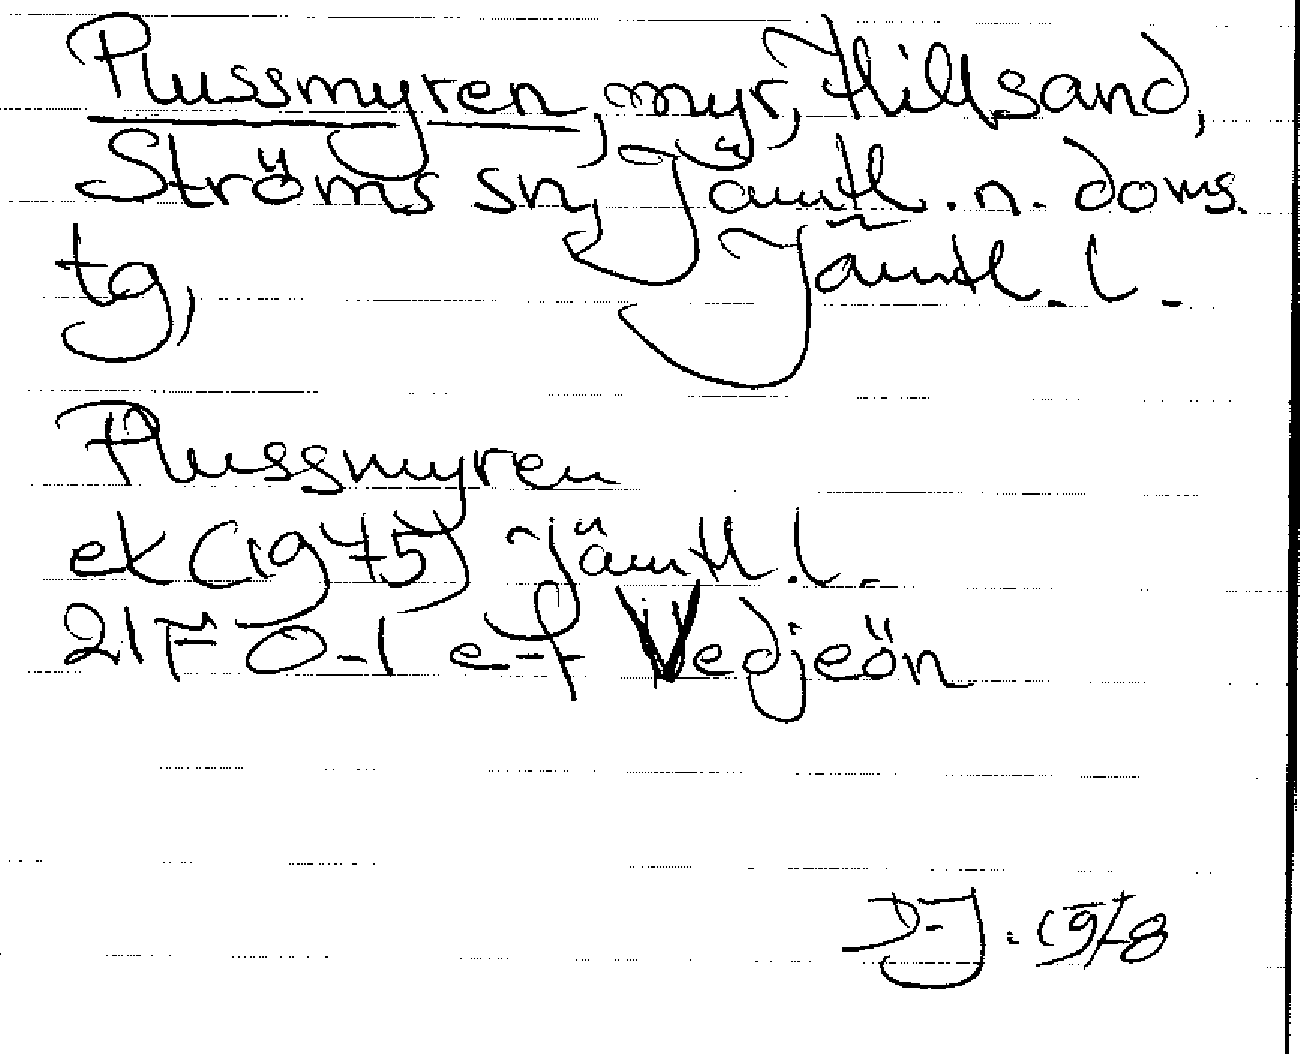 Plussmyren, myr, Hillsand,
Ströms sn, Jämtl. n. doms.
tg, Jämtl. l.
Plussmyren
ek (1975) Jämtl. l.
21F 0-1 e-f Vedjeön
D-J. 1978